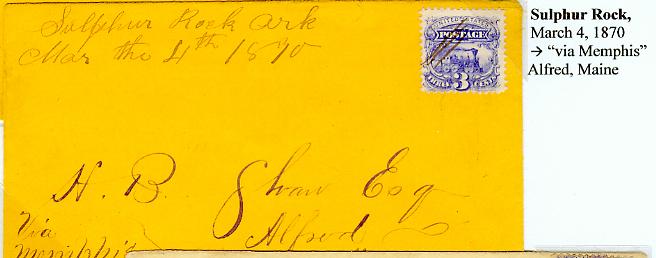 Sulphur Rock Ark
Mar the 4th 1870
UNITED STATES
POSTAGE
THREE CENTS
3
H. B. Shaw Esq
Alfred
Via
Memphis
Sulphur Rock,
March 4, 1870
→ “via Memphis”
Alfred, Maine